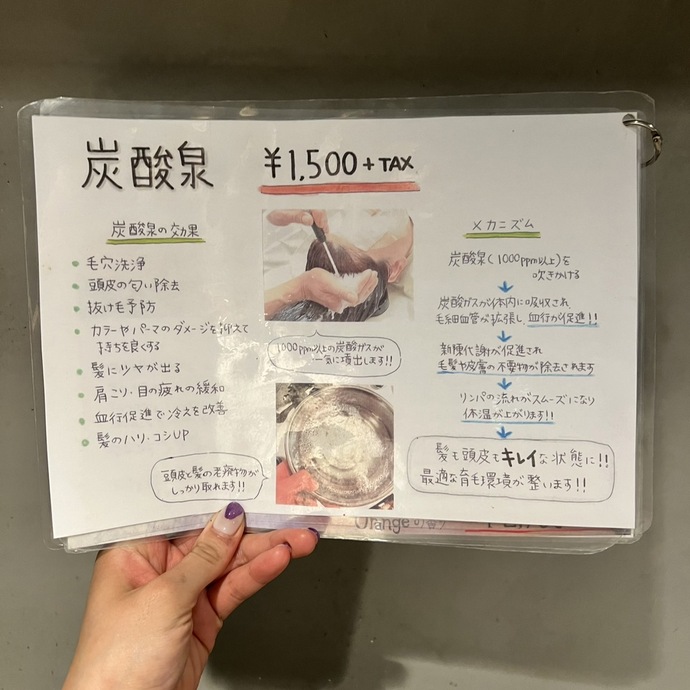 炭酸泉
¥1,500+TAX
炭酸泉の効果
毛穴洗浄
頭皮の匂い除去
抜け毛予防
カラーやパーマのダメージを抑えて
持ちを良くする
髪にツヤが出る
肩こり・目の疲れの緩和
血行促進で冷えを改善
髪のハリ・コシUP
1000ppm以上の炭酸ガスが
一気に噴出します!!
頭皮と髪の老廃物が
しっかり取れます!!
メカニズム
炭酸泉(1000ppm以上)を
吹きかける
炭酸ガスが体内に吸収され
毛細血管が拡張し血行が促進!!
新陳代謝が促進され
毛髪や皮膚の不要物が除去されます
リンパの流れがスムーズになり
体温が上がります!!
髪も頭皮もキレイな状態に!!
最適な育毛環境が整います!!
Orangeの香り